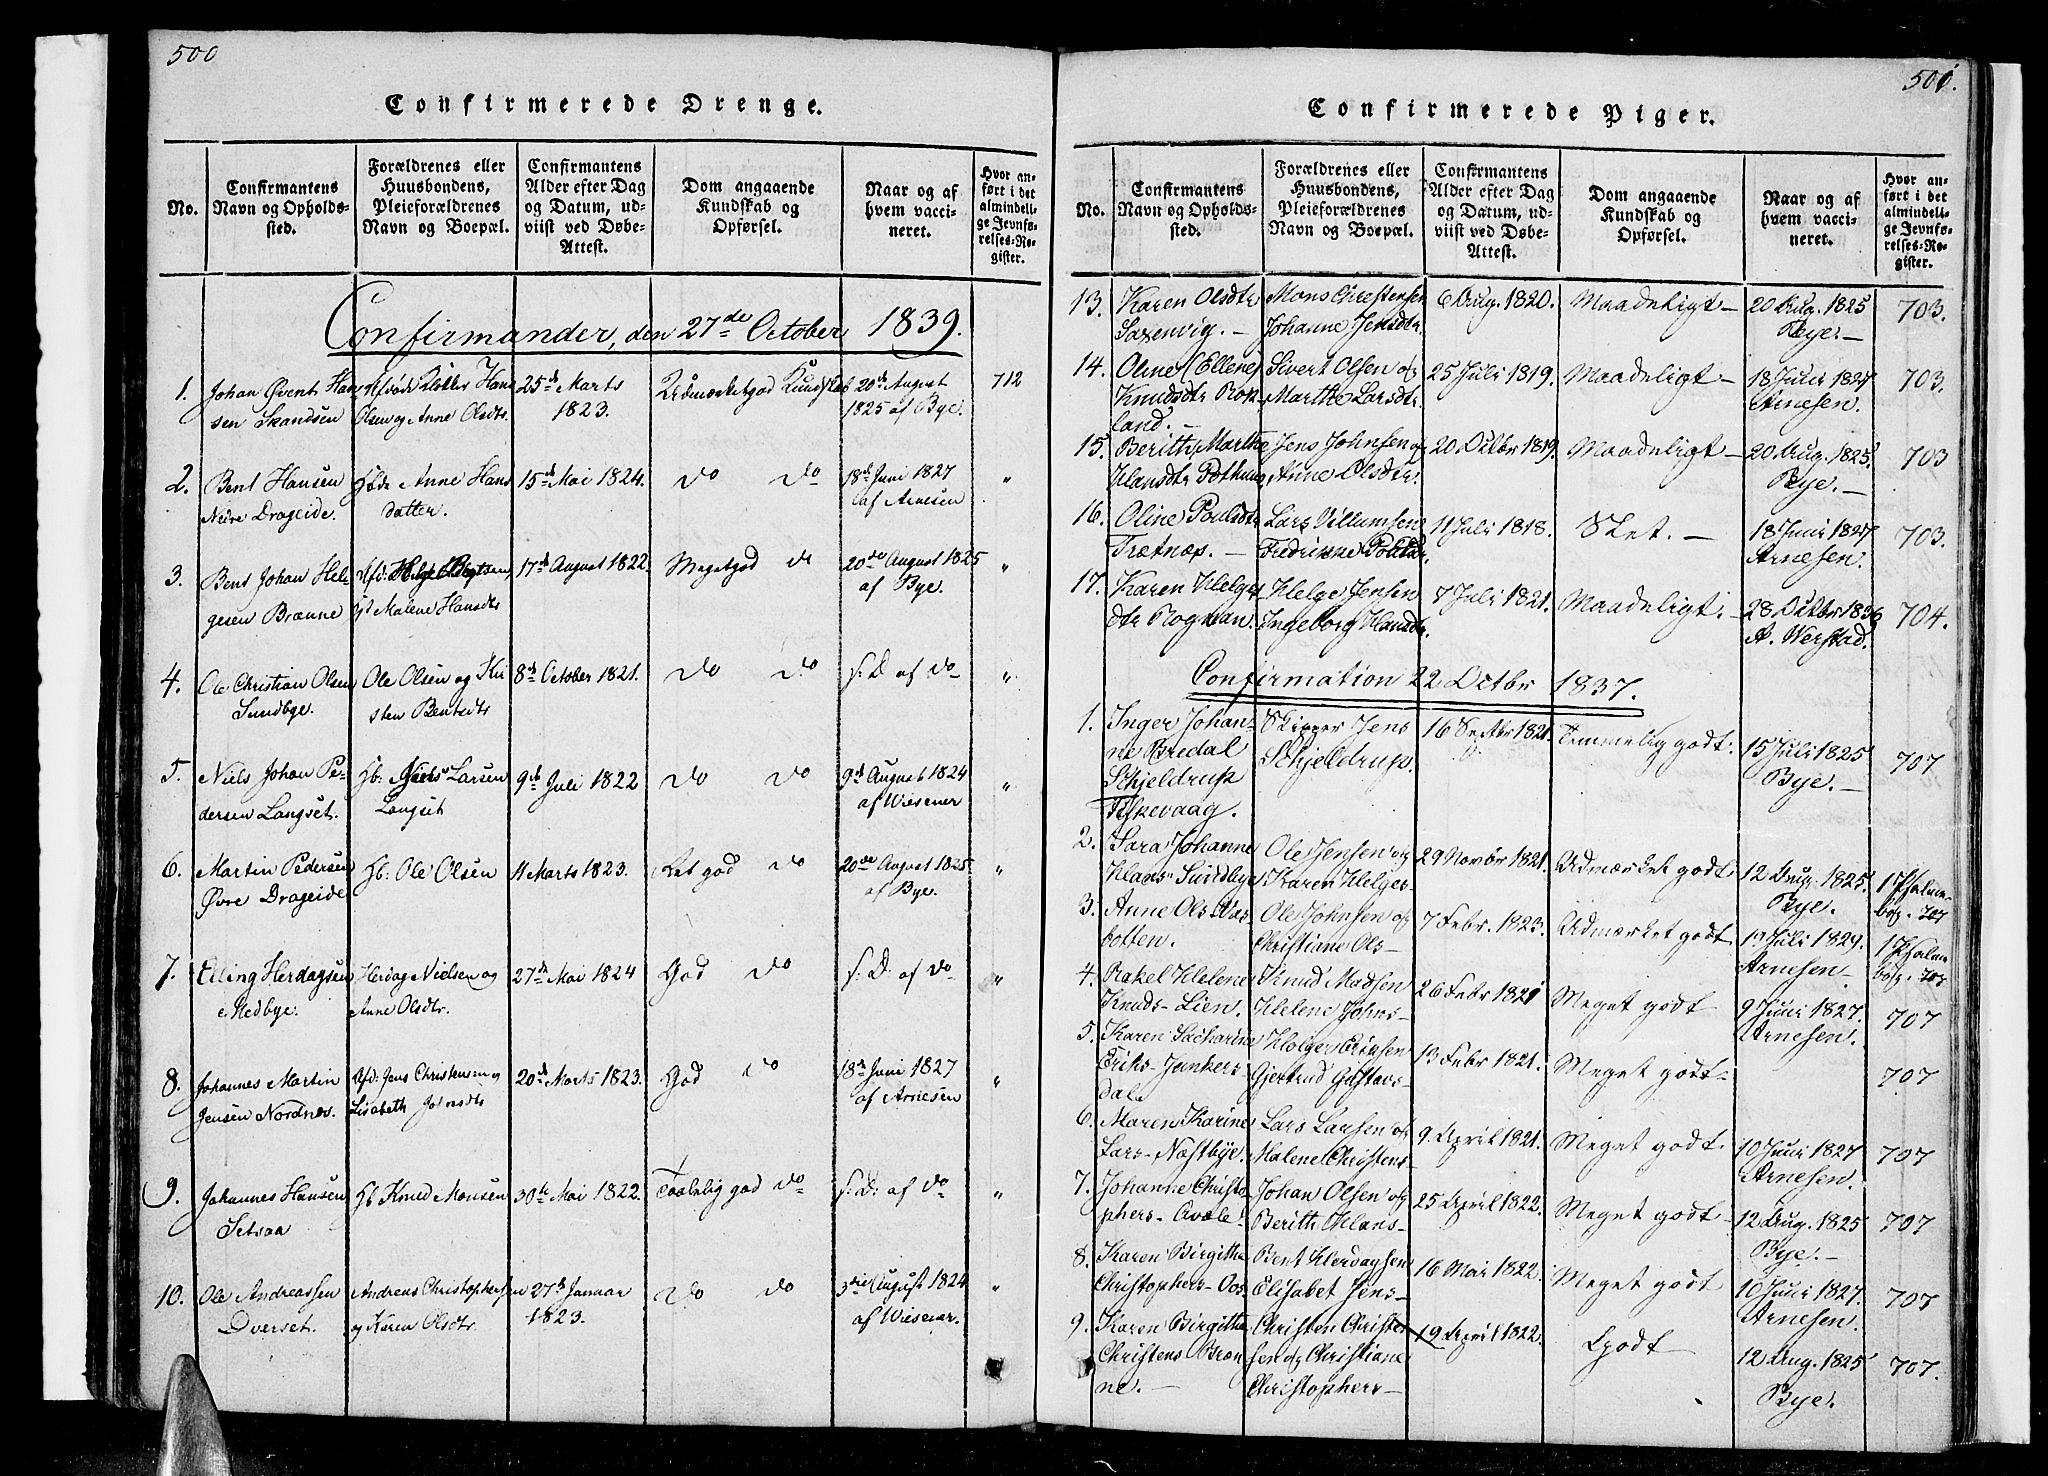 500
Confirmerede Drenge.
No.
Confirmantens Navn og Opholdssted.
Forældrenes eller Huusbondens, Pleieforældrenes Navn og Boepæl.
Confirmantens Alder efter Dag og Datum, udviist ved Døbe-Attest.
Dom angaaende Kundskab og Opførsel.
Naar og af hvem vaccineret.
Hvor anført i det almindelige Jevnførelses-Register.
Confirmander, den 27de October 1839.
1. Johan Øvent Han 25de Marts Udmærket god Kundskab 20de August 712
sen Skandsen Olsen og Anne Olsdtr. 1823. 1825 af Bye.
2. Bent Hansen Anne Hans 15de Mai 1824. do do 18de Juni 1827 "
Nedre Drageide. datter. af Arnesen
3. Bent Johan Hel 17de August 1822. Meget god do 20de August 1825 "
gesen Brænne Malene Hansdtr af Bye.
4. Ole Christian Olsen Ole Olsen og Ki 8de October 1821. do do s: D. af do "
Sundbye. sten Bentsdtr
5. Niels Johan Pe- Hb: Niels Larsen 9de Juli 1822 do do 9de August 1824 "
dersen Langset. Langset af Wiesener
6. Martin Pedersen Hb: Ole Olsen 11 Marts 1823. Ret god do 20de August 1825 "
Øvre Drageide af Bye.
7. Elling Herdagsen Herdag Nielsen og 27de Mai 1824 God do s: D: af do "
Medbye. Anne Olsdtr.
8. Johannes Martin Afd: Jens Christensen og 20de Marts 1823. God do 18de Juni 1827 "
Jensen Nordnes. Lisabeth af Arnesen
9. Johannes Hansen Hb Knud Monsen 30te Mai 1822. Taalelig god do s: D: af do "
Setsaa
10. Ole Andreassen Andreas Christophersen 27de Januar do do 3die August 1824 "
Dverset. og Karen Olsdtr. 1823. af Wiesener.
501.
Confirmerede Piger.
No.
Confirmantens Navn og Opholdssted.
Forældrenes eller Huusbondens, Pleieforældrenes Navn og Boepæl.
Confirmantens Alder efter Dag og Datum, udviist ved Døbe-Attest.
Dom angaaende Kundskab og Opførsel.
Naar og af hvem vaccineret.
Hvor anført i det almindelige Jevnførelses-Register.
13. Karen Olsdtr Mons Christensen 6 Aug. 1820. Maadeligt - 20 Aug. 1825 703.
Saxenvig. - Johanne Jensdtr. Bye. -
14. Oline (Ellene) Sivert Olsen og 25 Juli 1819. Maadeligt - 18 Juni 1827 703.
Knudsdtr Rok- Marthe Larsdtr Arnesen.
land. -
15. Berith Marthe Jens Johnsen og 20 Octbr 1819. Maadeligt - 20 Aug. 1825. 703
Hansdtr Anne Olsdtr. Bye. -
16. Oline Poulsdtr Lars Villumsen 11 Juli 1818. Slet. - 18 Juni 1827 703.
Trætnæs. - Fredrikke Arnesen.
17. Karen Helges Helge Jensen 7 Juli 1821. Maadeligt. - 28 Octbr 1836 704.
dtr Rognan. Ingeborg Hansdtr. A. Werstad.
Confirmation 22 Octbr 1837.
1. Inger Johan- Skipper Jens 16 Septbr 1821. Temmelig godt. 15 Juli 1825 707
ne Bredal Schjeldrup. Bye. -
Schjeldrup
Fiskevaag.
2. Sara Johanne Ole Jensen og 29 Novbr 1821. Udmærket godt 12 Aug. 1825. 1 Psalme-
Hans- Sundbye Karen Helges- Bye. bog. 707
3. Anne Ols Ole Johnsen og 7 Febr. 1823. Udmærket godt 19 Juli 1829. 1 Psalme
botten. Christiane Ols- Arnesen - bog. 707
4. Rakel Helene Knud Madsen 26 Febr 1821 Meget godt 9 Juni 1827. 707
Knuds- Lien. Helene Johns- Arnesen.
5. Karen Zacharine Holger Eriksen 13 Febr 1821. Meget godt - 707
Eriks- Junkers- Gjertrud Gustavs-
dal.
6. Maren Karine Lars Larsen og 9 April 1821. Meget godt. 10 Juni 1827 707
Lars- Næstbye. Malene Christens- Arnesen.
7. Johanne Christo- Johan Olsen og 25 April 1822. Meget godt - 12 Aug. 1825 707
phers- Berith Hans- Bye. -
8. Karen Birgitha Bent Herdagsen 16 Mai 1822. Meget godt 10 Juni 1827. 707
Christophers- Elisabet Jens- Arnesen.
9. Karen Birgitha Christen Christen 19 April 1822. Godt 12 Aug. 1825 707.
Christens Bræn sen og Christiane Bye.
ne. - Christophers-